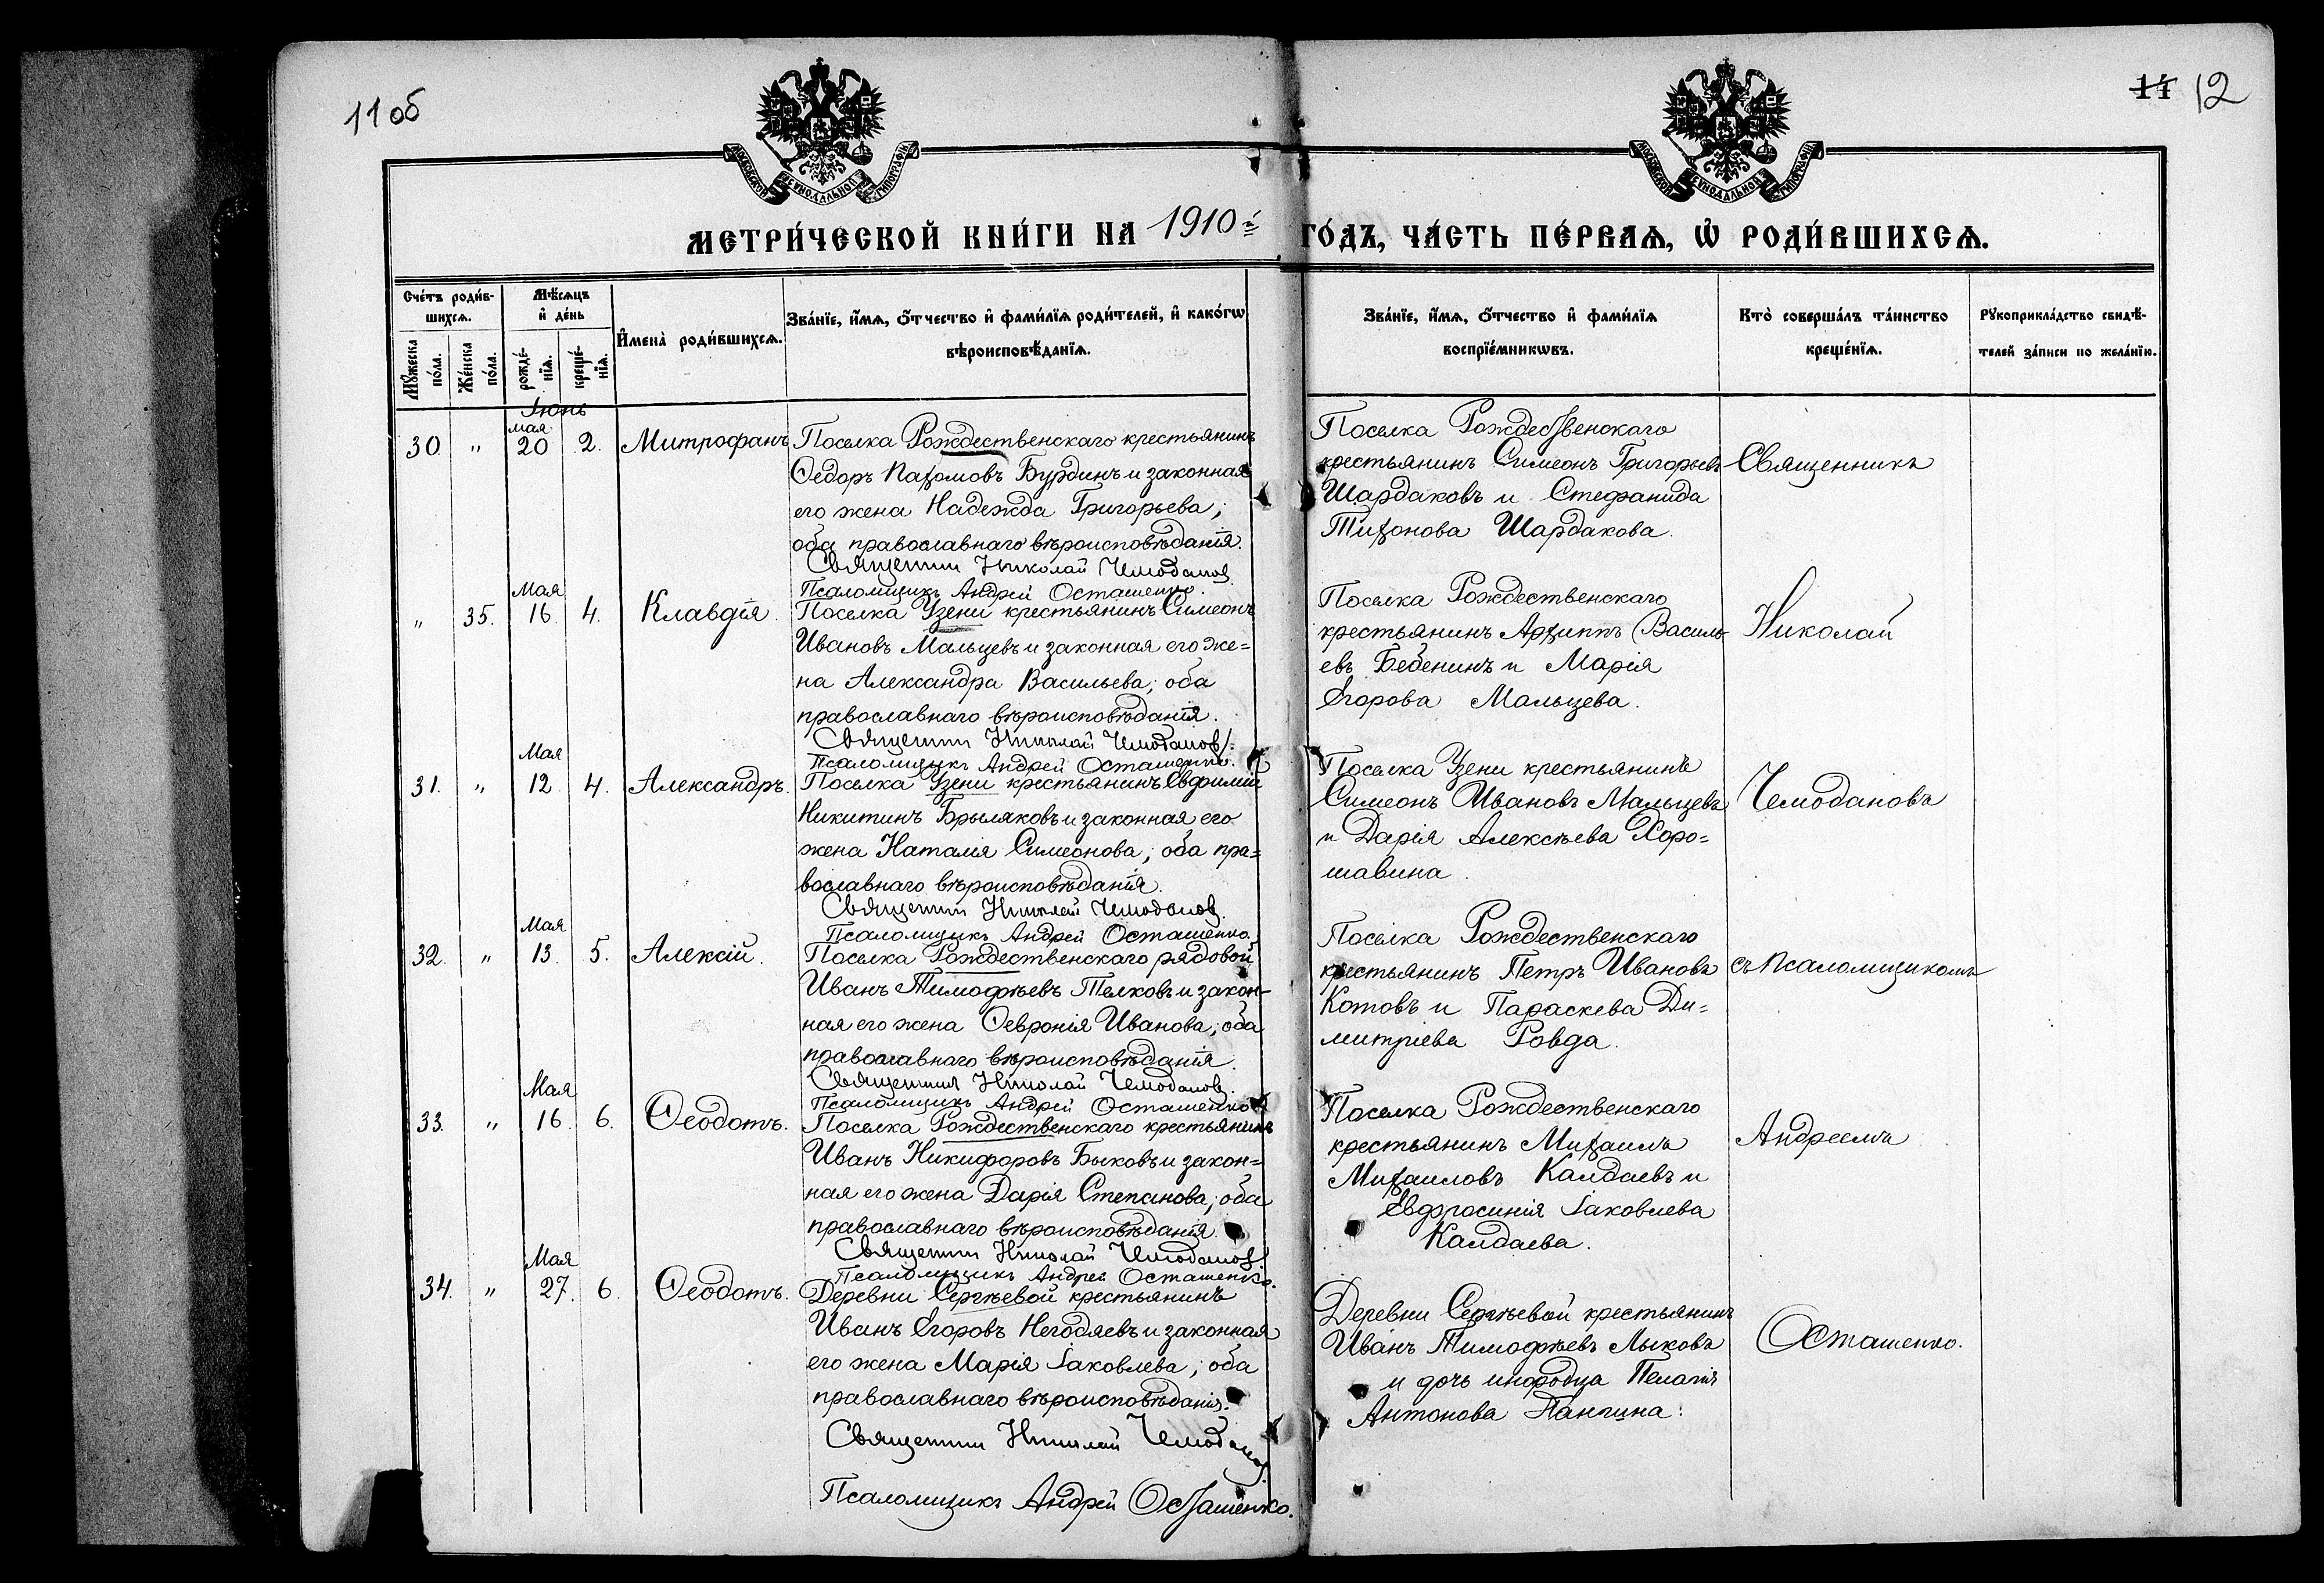 11 об
14 12
МОСКОВСКОЙ СѴНОДАЛЬНОЙ ТИПОГРАФІИ
МОСКОВСКОЙ СѴНОДАЛЬНОЙ ТИПОГРАФІИ
МЕТРИ́ЧЕСКОЙ КНИ́ГИ НА 1910й ГО́ДЪ, ЧА́СТЬ ПЕ́РВАѦ, Ѽ РОДИ́ВШИХСѦ.
Сче́тъ роди́в-
шихсѧ.
Мѣ́сѧцъ
и҆ де́нь
И҆мена̀ роди́вшихсѧ.
Зва́нїе, и҆́мѧ, ѻ҆́тчество и҆ фами́лїѧ роди́телей, и҆ како́гѡ
вѣроисповѣ́данїѧ.
Зва́нїе, и҆́мѧ, ѻ҆́тчество и҆ фами́лїѧ
воспрїе́мникѡвъ.
Кто̀ соверша́лъ та́инство
креще́нїѧ.
Рꙋкоприкла́дство свидѣ́-
телей за́писи по жела́нїю.
Мꙋ́жеска по́ла.
Же́нска по́ла.
рожде́-
нїѧ.
креще́-
нїѧ.
Іюнь
мая
30 " 20 2. Митрофанъ Поселка Рождественскаго крестьянинъ
Ѳедоръ Пахомовъ Бурдинъ и законная
его жена Надежда Григорьева;
оба православнаго вѣроисповѣданія.
Священник Николай Чемоданов.
Псаломщикъ Андрей Осташенко.
Поселка Рождественскаго
крестьянинъ Симеонъ Григорьевъ
Шардаковъ и Стефанида
Тихонова Шардакова.
Священникъ
Мая
" 35. 16 4. Клавдія. Поселка Узени крестьянинъ Симеонъ
Ивановъ Мальцевъ и законная его же=
на Александра Васильева; оба
православнаго вѣроисповѣданія.
Священник Николай Чемоданов.
Псаломщикъ Андрей Осташенко.
Поселка Рождественскаго
крестьянинъ Архиппъ Василь-
евъ Бебенинъ и Марія
Егорова Мальцева.
Николай
Мая
31. " 12 4. Александръ. Поселка Узени крестьянинъ Евфимій
Никитинъ Брыляковъ и законная его
жена Наталія Симеонова; оба пра=
вославнаго вѣроисповѣданія.
Священник Николай Чемоданов.
Псаломщикъ Андрей Осташенко.
Поселка Узени крестьянинъ
Симеонъ Ивановъ Мальцевъ
и Дарія Алексѣева Хоро=
шавина.
Чемодановъ
Мая
32. " 13. 5. Алексій. Поселка Рождественскаго рядовой
Иванъ Тимофѣевъ Телковъ и закон-
ная его жена Ѳевронія Иванова; оба
православнаго вѣроисповѣданія.
Священник Николай Чемоданов.
Псаломщикъ Андрей Осташенко
Поселка Рождественскаго
крестьянинъ Петръ Ивановъ
Котовъ и Параскева Ди=
митріева Ровда.
съ псаломщикомъ
Мая
33. " 16. 6. Ѳеодотъ. Поселка Рождественскаго крестьянинъ
Иванъ Никифоровъ Быковъ и закон=
ная его жена Дарія Степанова; оба
православнаго вѣроисповѣданія.
Священник Николай Чемоданов.
Псаломщикъ Андрей Осташенко.
Поселка Рождественскаго
крестьянинъ Михаилъ
Михаиловъ Калдаевъ и
Евфросинія Іаковлева
Калдаева.
Андреемъ
Мая
34. " 27. 6. Ѳеодотъ. Деревни Сергѣевой крестьянинъ
Иванъ Егоровъ Негодяевъ и законная
его жена Марія Іаковлева; оба
православнаго вѣроисповѣданія.
Священник Николай Чемоданов.
Псаломщикъ Андрей Осташенко.
Деревни Сергѣевой крестьянинъ
Иванъ Тимофѣевъ Лыковъ
и дочь инородца Пелагія
Антонова
Осташенко.